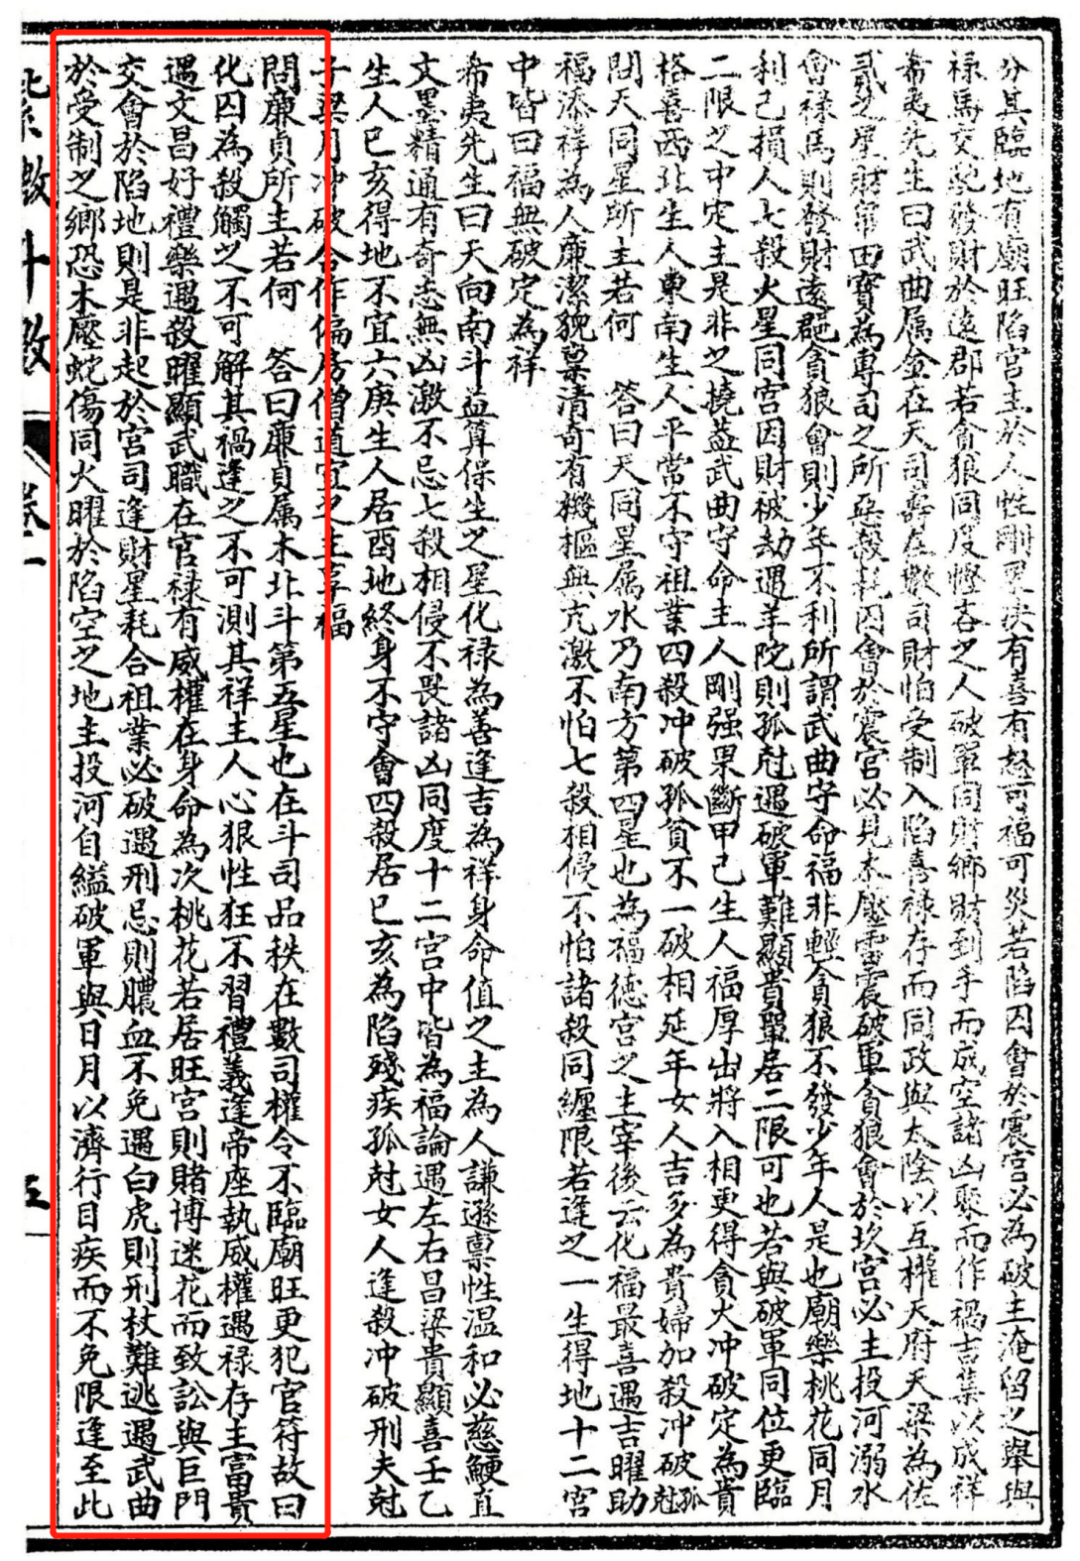 分其臨地有廟旺陷宮主於人性剛果決有喜有怒可福可災若陷囚會於震宮必為破主淹留之舉與
祿馬交馳發財於遠郡若貪狼同度慳吝之人破軍同財鄉財到手而成空諸凶聚而作禍吉集以成祥
希夷先生曰武曲属金在天司壽在數司財怕受制入陷喜祿存而同政與太陰以互權天府天梁為佐
貳之星財帛田宅為專司之所惡殺耗囚會於震宮必見木壓雷震破軍貪狼會於坎宮必主投河溺水
會祿馬則發財遠郡貪狼會則少年不利所謂武曲守命福非輕貪狼不發少年人是也廟樂桃花同月
利己損人七殺火星同宮因財被劫遇羊陀則孤尅遇破軍難顯貴單居二限可也若與破軍同位更臨
二限之中定主是非之撓蓋武曲守命主人剛强果斷甲己生人福厚出將入相更得貪火冲破定為貴
格喜西北生人東南生人平常不守祖業四殺冲破孤貧不一破相延年女人吉多為貴婦加殺冲破孤尅
問天同星所主若何　答曰天同星属水乃南方第四星也為福德宮之主宰後云化福最喜遇吉曜助
福添祥為人廉潔貌稟清奇有機樞無亢激不怕七殺相侵不怕諸殺同纏限若逢之一生得地十二宮
中皆曰福無破定為祥
希夷先生曰天向南斗益算保生之星化祿為善逢吉為祥身命值之主為人謙遜稟性温和必慈鯁直
文墨精通有奇志無凶激不忌七殺相侵不畏諸凶同度十二宮中皆為福論遇左右昌梁貴顯喜壬乙
生人巳亥得地不宜六庚生人居酉地終身不守會四殺居巳亥為陷殘疾孤尅女人逢殺冲破刑夫尅
子梁月冲破合作偏房僧道宜之主享福
問廉貞所主若何　答曰廉貞属木北斗第五星也在斗司品秩在數司權令不臨廟旺更犯官符故曰
化囚為殺觸之不可解其禍逢之不可測其祥主人心狠性狂不習禮義逢帝座執威權遇祿存主富貴
遇文昌好禮樂遇殺曜顯武職在官祿有威權在身命為次桃花若居旺宮則賭博迷花而致訟與巨門
交會於陷地則是非起於官司逢財星耗合祖業必破遇刑忌則膿血不免遇白虎則刑杖難逃遇武曲
於受制之鄉恐木壓蛇傷同火曜於陷空之地主投河自縊破軍與日月以濟行目疾而不免限逢至此
紫微斗數　卷一　五